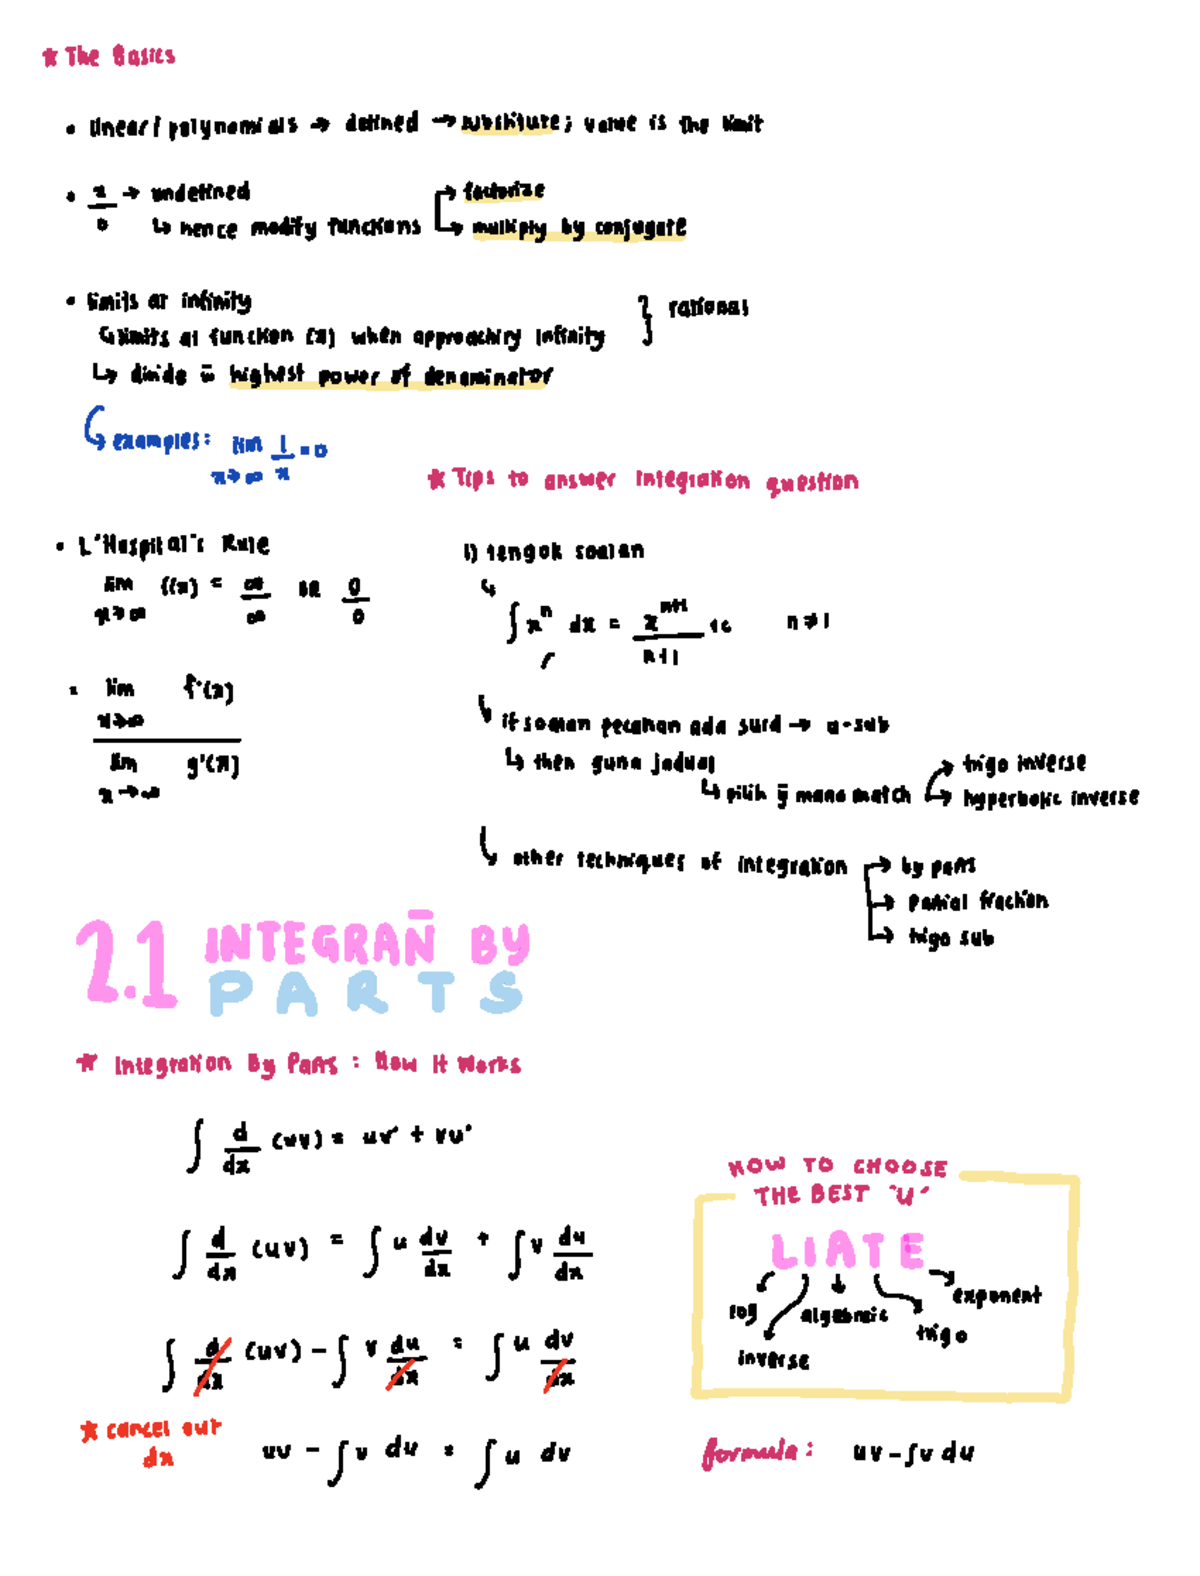 ★ The Basics
• linear / polynomials → defined → substitute ; value is the limit
• x/0 → undefined → factorize
↳ hence modify functions ↳ multiply by conjugate
• limits at infinity } rational
↳ limits at function (x) when approaching infinity
↳ divide w̄ highest power of denominator
↳ examples: lim x→∞ 1/x = 0
★ Tips to answer integration question
• L'Hospital's Rule
lim x→∞ f(x) = ∞/∞ OR 0/0
= lim x→∞ f'(x)
lim x→∞ g'(x)
1) tengok soalan
↳ ∫ xⁿ dx = xⁿ⁺¹/n+1 + c n ≠ 1
↳ if soalan pecahan ada surd → u-sub
↳ then guna jadual
↳ pilih ȳ mana match → trigo inverse
→ hyperbolic inverse
↳ other techniques of integration → by parts
→ partial fraction
→ trigo sub
2.1 INTEGRAÑ BY
PARTS
★ Integration By Parts : How It Works
∫ d/dx (uv) = uv' + vu'
∫ d/dx (uv) = ∫ u dv/dx + ∫ v du/dx
∫ d/dx (uv) - ∫ v du/dx = ∫ u dv/dx
★ cancel out
dx
uv - ∫ v du = ∫ u dv
HOW TO CHOOSE
THE BEST "U"
LIATE
log
inverse
algebraic
trigo
exponent
formula: uv - ∫v du